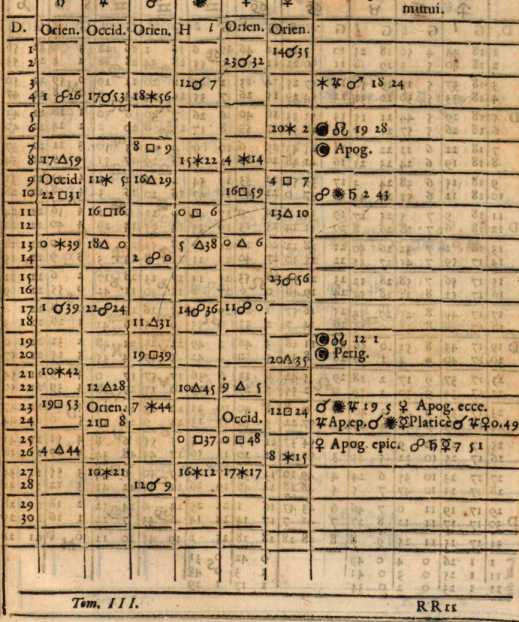 mutui.
D. Orien. Occid. Orien. H l Orien. Orien.
1 14☌35
2 23☌32
3 12☌ 7 ⚹♃♂ 18 24
4 1 ☍26 17☌53 18⚹56
5
6 20⚹ 2 ☊ 19 28
7 8 □ 9 Apog.
8 17△59 15⚹22 4 ⚹14
9 Occid. 11⚹ 5 16△29 4 □ 7
10 22□31 16□59 ☍☉♄ 2 43
11 16□16 0 □ 6 13△10
12
13 0 ⚹39 18△ 0 5 △38 0 △ 6
14 2 ☍ 0
15 23☍56
16
17 1 ☌39 22☍24 14☍36 11☍ 0
18 11△31
19 12 1
20 19□39 20△35 Perig.
21 10⚹42
22 12△28 10△45 9 △ 5
23 19□53 Orien. 7 ⚹44 12□24 ☌☉♃ 19 5 ♀ Apog. ecce.
24 21□ 8 Occid. ♃Ap.ep.☌☉☿Platice☌♃♀0.49
25 0 □37 0 □48 ♀ Apog epic. ☍♄☿7 51
26 4 △44 8 ⚹15
27 10⚹21 16⚹12 17⚹17
28 12☌ 9
29
30
31
Tom. III. RRrr